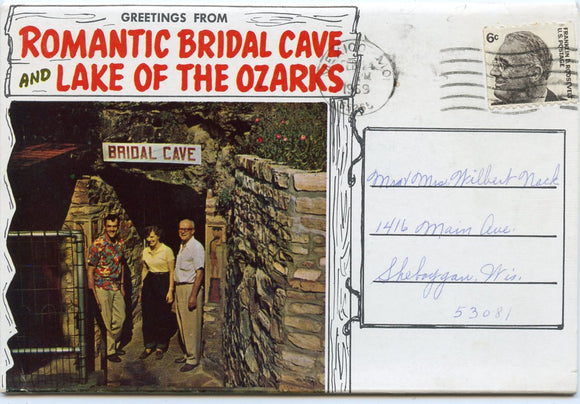 GREETINGS FROM
ROMANTIC BRIDAL CAVE
AND LAKE OF THE OZARKS
BRIDAL CAVE
MO.
1969
6¢
FRANKLIN D. ROOSEVELT
U.S. POSTAGE
Mr & Mrs. Wilbert Nack
1416 Main Ave.
Sheboygan, Wis.
53081